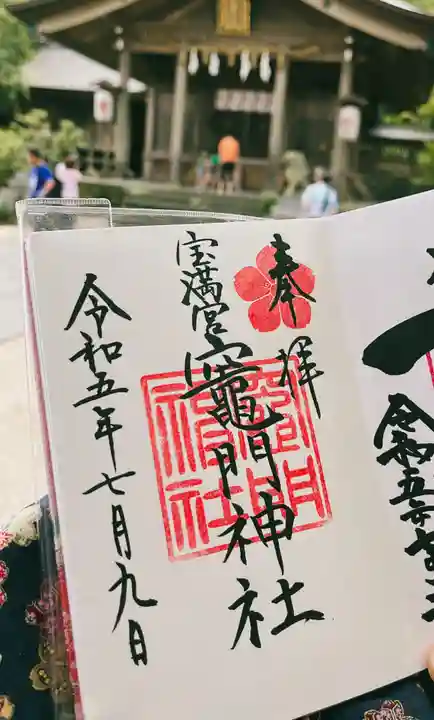 奉拝
宝満宮
竈門神社
竈門神社
令和五年七月九日
令和五年